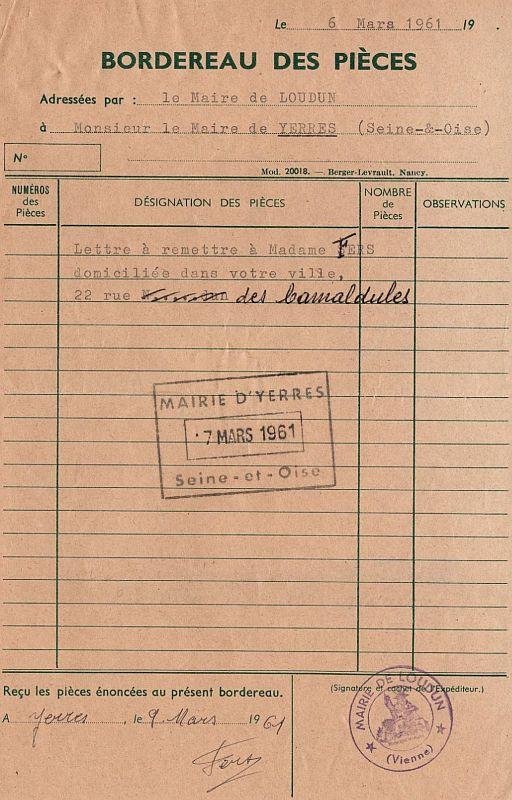 Le 6 Mars 1961 19 .
BORDEREAU DES PIÈCES
Adressées par : le Maire de LOUDUN
à Monsieur le Maire de YERRES (Seine-&-Oise)
N°
Mod. 20018. — Berger-Levrault, Nancy.
NUMÉROS des Pièces
DÉSIGNATION DES PIÈCES
NOMBRE de Pièces
OBSERVATIONS
Lettre à remettre à Madame FERS
domiciliée dans votre ville,
22 rue des Camaldules
MAIRIE D'YERRES
7 MARS 1961
Seine-et-Oise
Reçu les pièces énoncées au présent bordereau.
A Yerres , le 9 Mars 1961
Fers
(Signature et cachet de l'Expéditeur.)
MAIRIE DE LOUDUN
(Vienne)